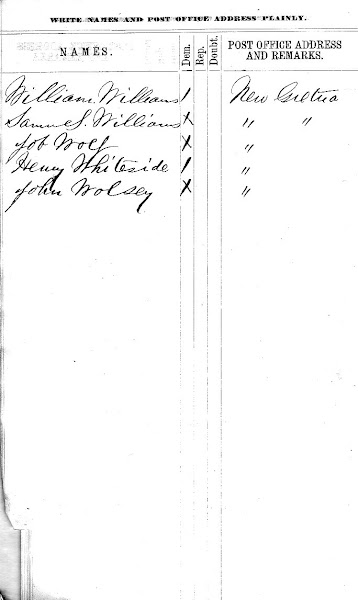 WRITE NAMES AND POST OFFICE ADDRESS PLAINLY.
NAMES. Dem. Rep. Doubt. POST OFFICE ADDRESS AND REMARKS.
William Williams / New Gretna
Samuel S. Williams X " "
Job Wolf X "
Henry Whiteside / "
John Wolsey X "